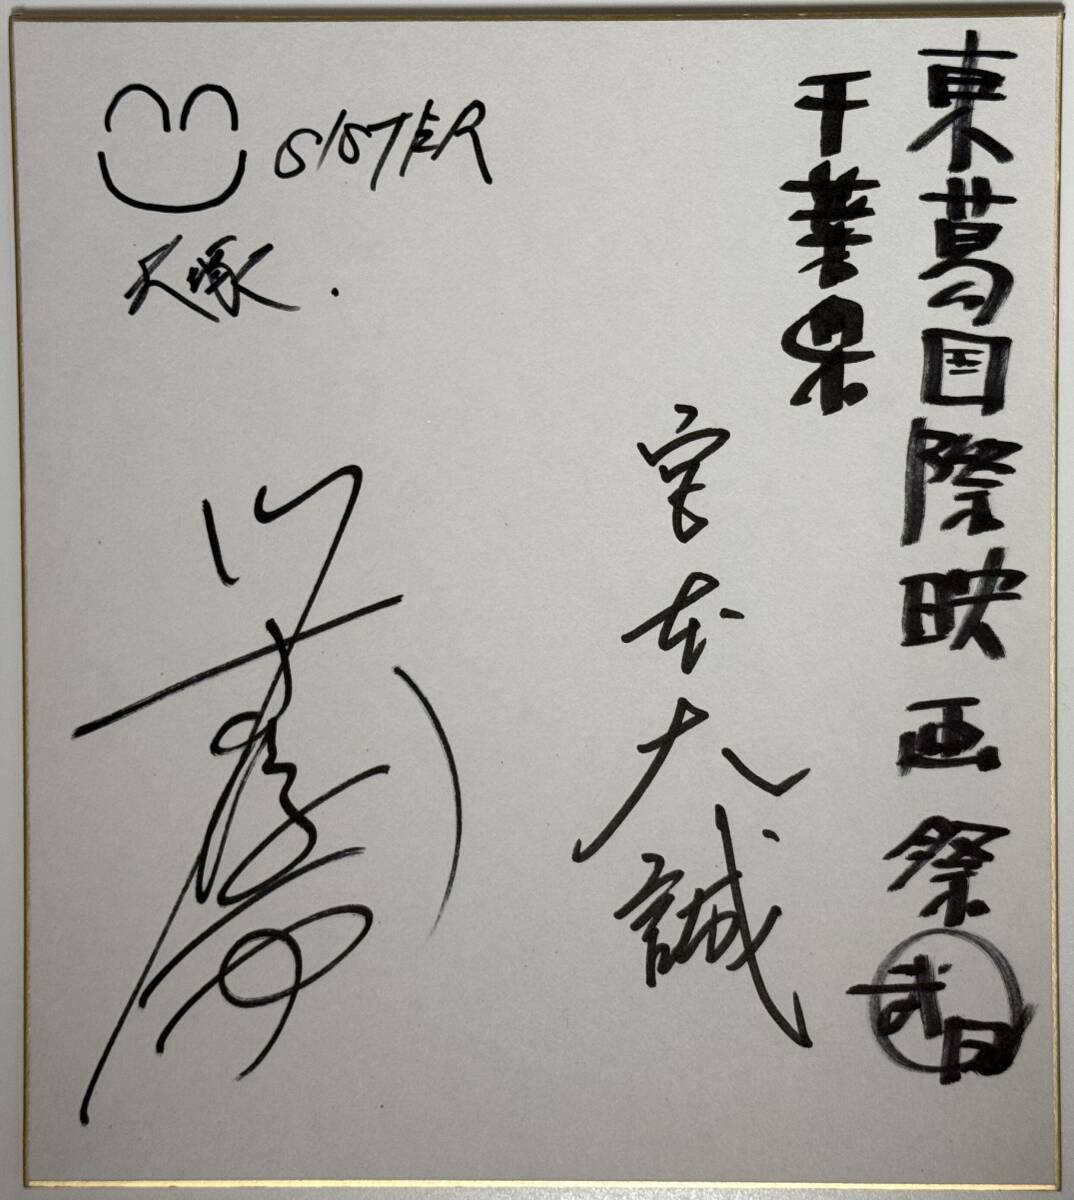 東葛国際映画祭
千葉県
宮本大誠
SISTER
大塚.